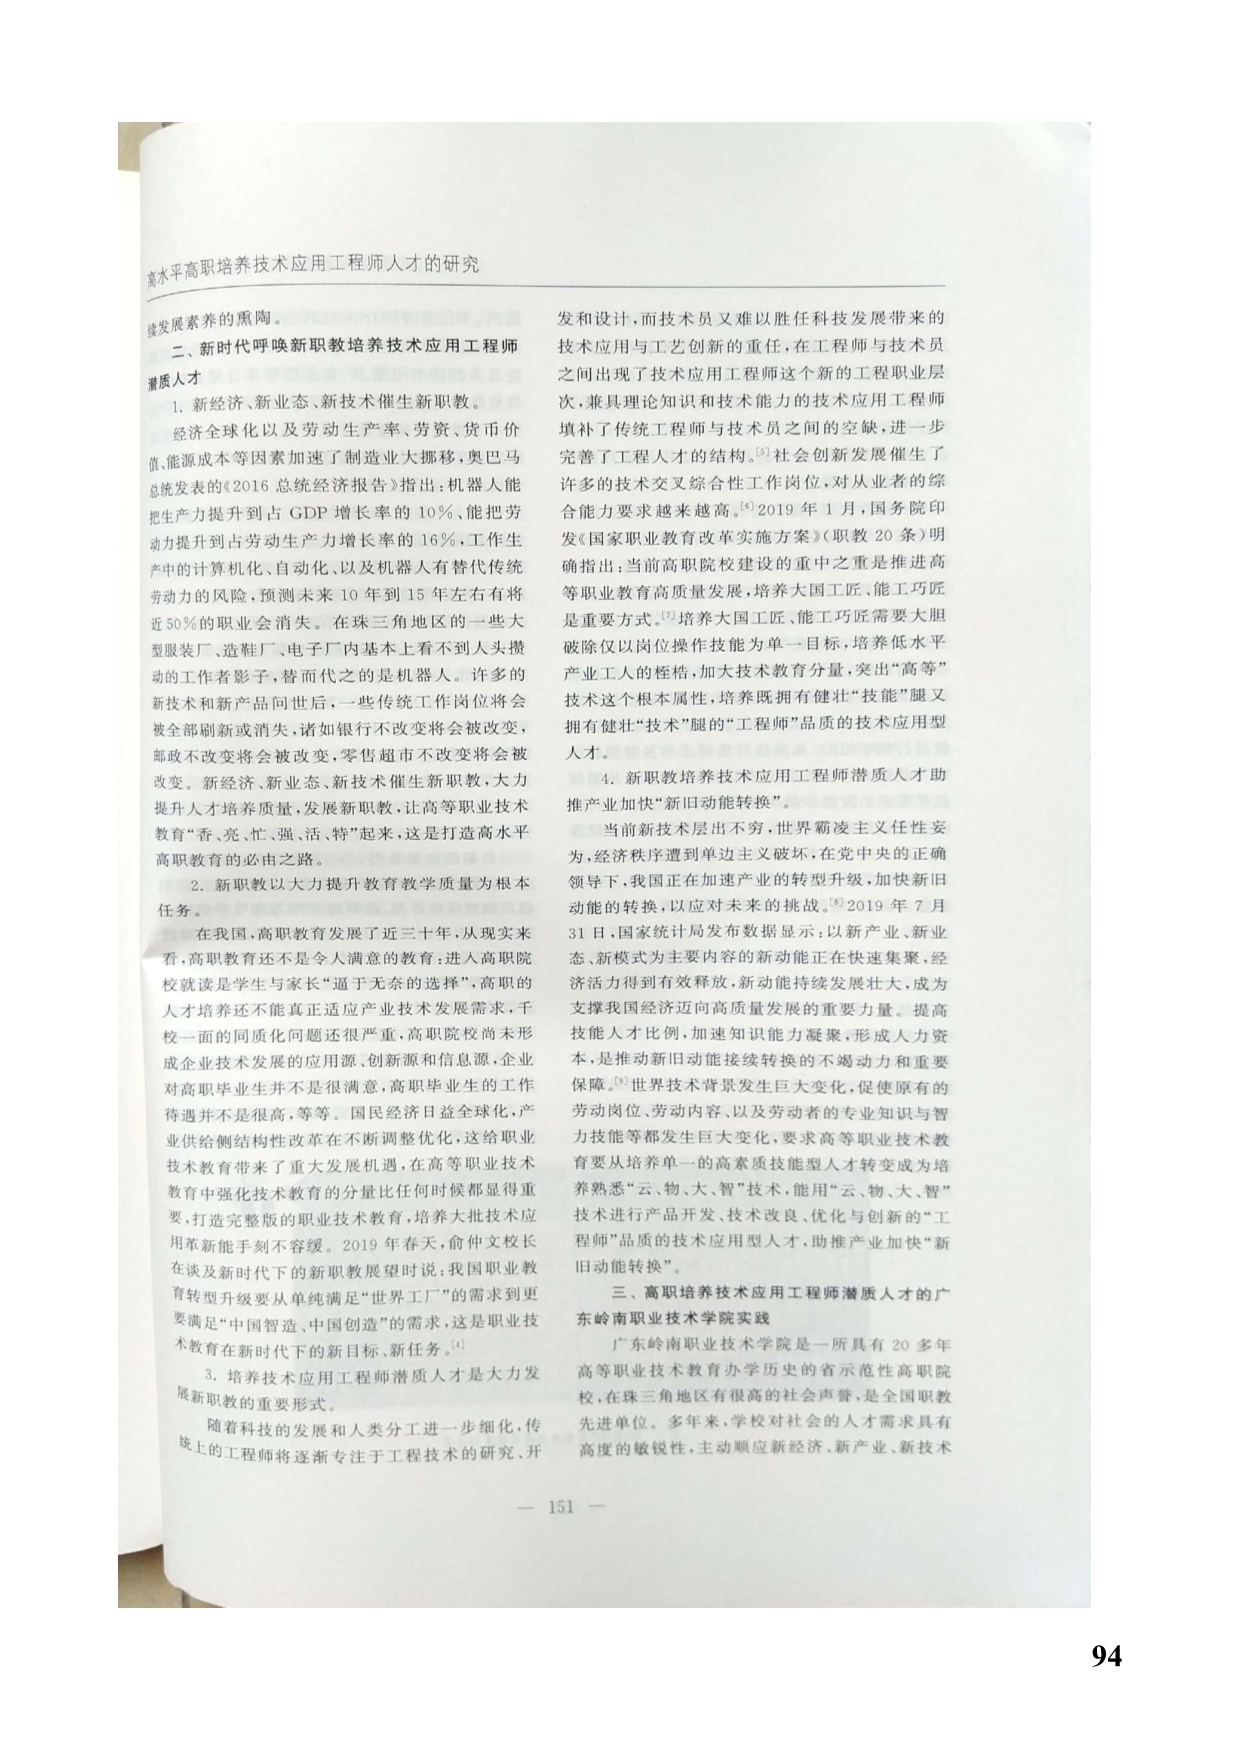 高水平高职培养技术应用工程师人才的研究
续发展素养的熏陶。
二、新时代呼唤新职教培养技术应用工程师
潜质人才
1. 新经济、新业态、新技术催生新职教。
经济全球化以及劳动生产率、劳资、货币价
值、能源成本等因素加速了制造业大挪移,奥巴马
总统发表的《2016 总统经济报告》指出:机器人能
把生产力提升到占 GDP 增长率的 10%、能把劳
动力提升到占劳动生产力增长率的 16%,工作生
产中的计算机化、自动化、以及机器人有替代传统
劳动力的风险,预测未来 10 年到 15 年左右有将
近 50%的职业会消失。在珠三角地区的一些大
型服装厂、造鞋厂、电子厂内基本上看不到人头攒
动的工作者影子,替而代之的是机器人。许多的
新技术和新产品问世后,一些传统工作岗位将会
被全部刷新或消失,诸如银行不改变将会被改变,
邮政不改变将会被改变,零售超市不改变将会被
改变。新经济、新业态、新技术催生新职教,大力
提升人才培养质量,发展新职教,让高等职业技术
教育“香、亮、忙、强、活、特”起来,这是打造高水平
高职教育的必由之路。
2. 新职教以大力提升教育教学质量为根本
任务。
在我国,高职教育发展了近三十年,从现实来
看,高职教育还不是令人满意的教育;进入高职院
校就读是学生与家长“逼于无奈的选择”,高职的
人才培养还不能真正适应产业技术发展需求,千
校一面的同质化问题还很严重,高职院校尚未形
成企业技术发展的应用源、创新源和信息源,企业
对高职毕业生并不是很满意,高职毕业生的工作
待遇并不是很高,等等。国民经济日益全球化,产
业供给侧结构性改革在不断调整优化,这给职业
技术教育带来了重大发展机遇,在高等职业技术
教育中强化技术教育的分量比任何时候都显得重
要,打造完整版的职业技术教育,培养大批技术应
用革新能手刻不容缓。2019 年春天,俞仲文校长
在谈及新时代下的新职教展望时说:我国职业教
育转型升级要从单纯满足“世界工厂”的需求到更
要满足“中国智造、中国创造”的需求,这是职业技
术教育在新时代下的新目标、新任务。[4]
3. 培养技术应用工程师潜质人才是大力发
展新职教的重要形式。
随着科技的发展和人类分工进一步细化,传
统上的工程师将逐渐专注于工程技术的研究、开
发和设计,而技术员又难以胜任科技发展带来的
技术应用与工艺创新的重任,在工程师与技术员
之间出现了技术应用工程师这个新的工程职业层
次,兼具理论知识和技术能力的技术应用工程师
填补了传统工程师与技术员之间的空缺,进一步
完善了工程人才的结构。[5]社会创新发展催生了
许多的技术交叉综合性工作岗位,对从业者的综
合能力要求越来越高。[6]2019 年 1 月,国务院印
发《国家职业教育改革实施方案》(职教 20 条)明
确指出:当前高职院校建设的重中之重是推进高
等职业教育高质量发展,培养大国工匠、能工巧匠
是重要方式。[7]培养大国工匠、能工巧匠需要大胆
破除仅以岗位操作技能为单一目标,培养低水平
产业工人的桎梏,加大技术教育分量,突出“高等”
技术这个根本属性,培养既拥有健壮“技能”腿又
拥有健壮“技术”腿的“工程师”品质的技术应用型
人才。
4. 新职教培养技术应用工程师潜质人才助
推产业加快“新旧动能转换”。
当前新技术层出不穷,世界霸凌主义任性妄
为,经济秩序遭到单边主义破坏,在党中央的正确
领导下,我国正在加速产业的转型升级,加快新旧
动能的转换,以应对未来的挑战。[8]2019 年 7 月
31 日,国家统计局发布数据显示:以新产业、新业
态、新模式为主要内容的新动能正在快速集聚,经
济活力得到有效释放,新动能持续发展壮大,成为
支撑我国经济迈向高质量发展的重要力量。提高
技能人才比例,加速知识能力凝聚,形成人力资
本,是推动新旧动能接续转换的不竭动力和重要
保障。[9]世界技术背景发生巨大变化,促使原有的
劳动岗位、劳动内容、以及劳动者的专业知识与智
力技能等都发生巨大变化,要求高等职业技术教
育要从培养单一的高素质技能型人才转变成为培
养熟悉“云、物、大、智”技术,能用“云、物、大、智”
技术进行产品开发、技术改良、优化与创新的“工
程师”品质的技术应用型人才,助推产业加快“新
旧动能转换”。
三、高职培养技术应用工程师潜质人才的广
东岭南职业技术学院实践
广东岭南职业技术学院是一所具有 20 多年
高等职业技术教育办学历史的省示范性高职院
校,在珠三角地区有很高的社会声誉,是全国职教
先进单位。多年来,学校对社会的人才需求具有
高度的敏锐性,主动顺应新经济、新产业、新技术
— 151 —
94